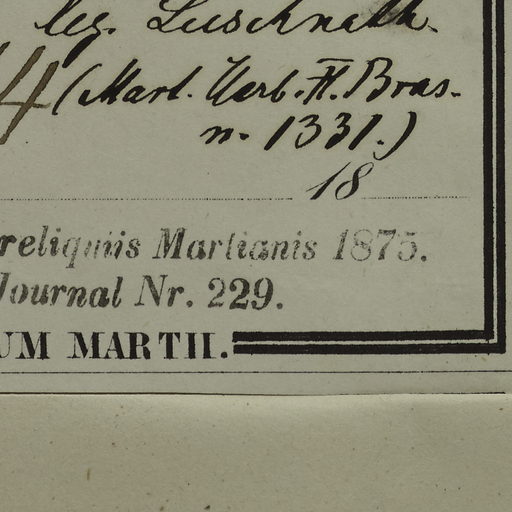 leg. Luschnath.
4 (Mart. Herb. Fl. Bras.
n. 1331.)
18
reliquiis Martianis 1875.
Journal Nr. 229.
UM MARTII.